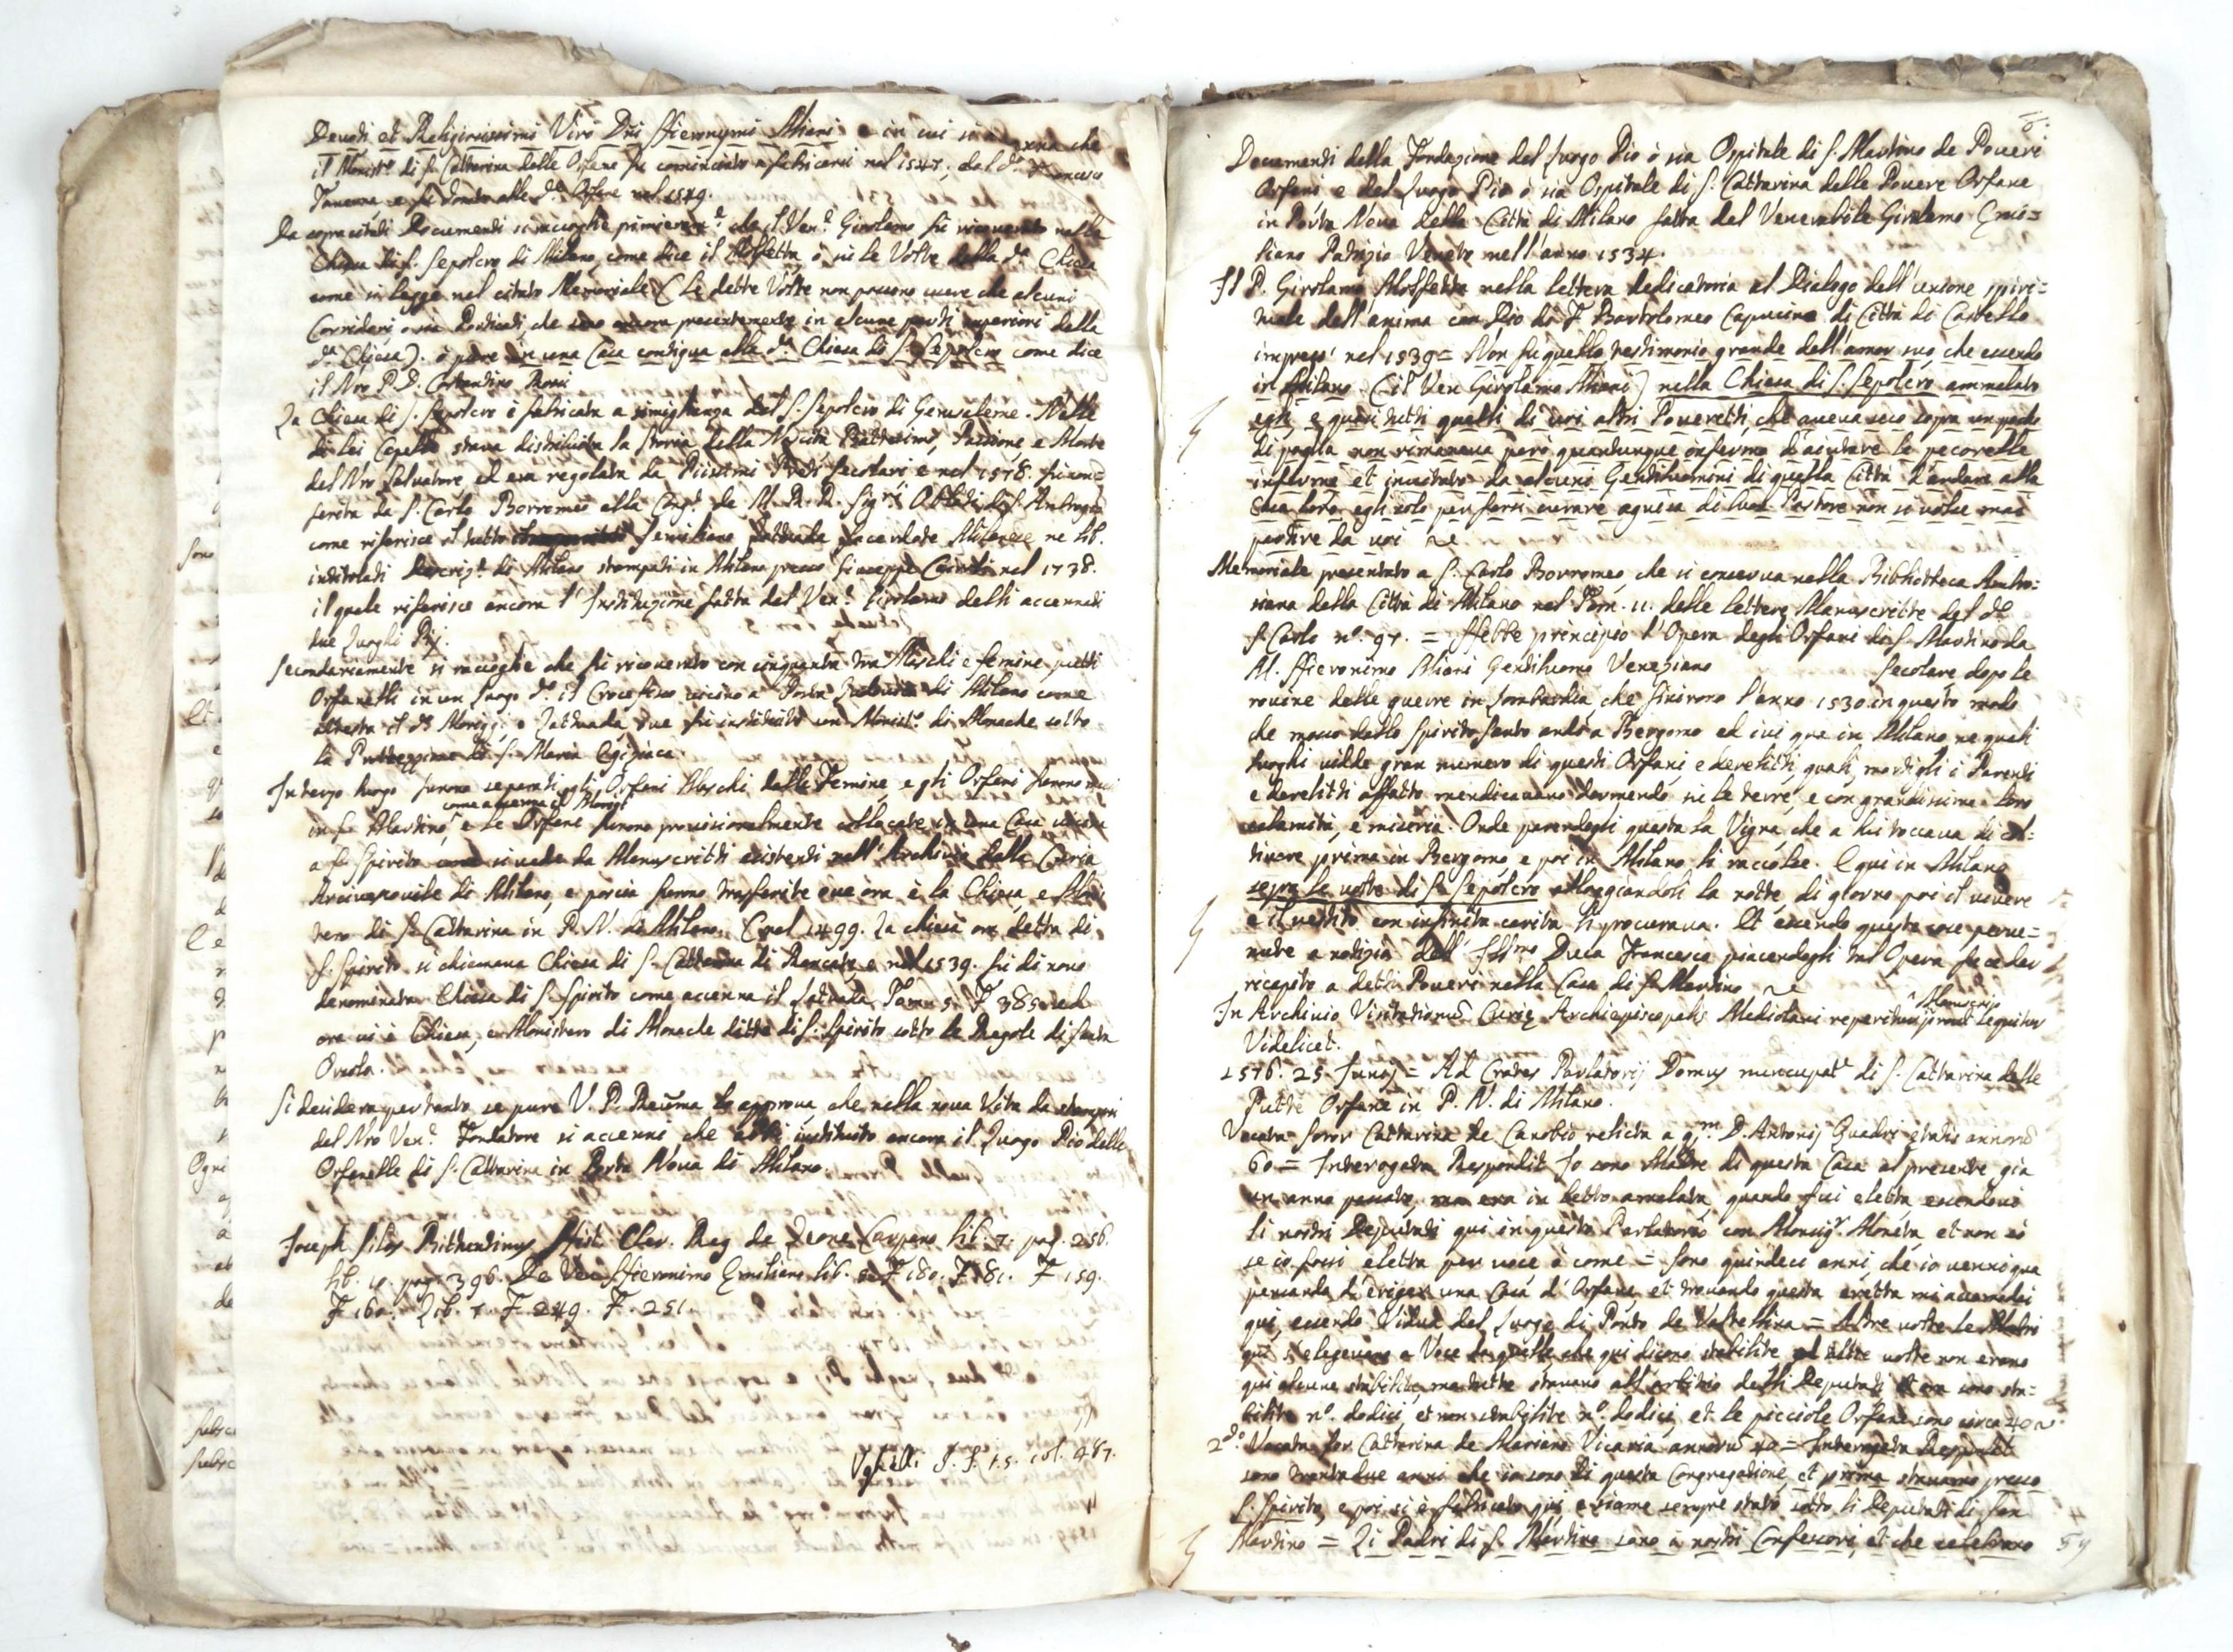 Deuoti et Religiosissimi Viri Dni Hieronymi Miani e in cui si accenna che
il Monist.º di S. Cattarina delle Orfane fu cominciato a fabricarsi nel 1547, dal d.º Francesco
Tauerna, e fu donato alle d.e Orfane nel 1549.
Da sopracitati Documenti si raccoglie primieram.e che il Ven.e Girolamo fu ricouerato nella
Chiesa di S. Sepolcro di Milano, come dice il Molfetta, o su le Volte della d.a Chiesa
come si legge nel citato Memoriale (Le dette Volte non possono essere che alcuni
Corridori, o sia Porticati, che sono ancora presentemente in alcune parti superiori della
d.a Chiesa). o pure in una Casa contigua alla d.a Chiesa di S. Sepolcro come dice
il Nro P. D. Costantino Rossi
La Chiesa di S. Sepolcro è fabricata a simiglianza del S. Sepolcro di Gerusaleme. Nelle
di lei Capelle staua distribuita la storia della Nascita Battesimo, Passione, e Morte
del Nro Saluatore ed era regolata da Piissimi Preti Secolari e nel 1578. fu con=
ferita da S. Carlo Borromeo alla Cong.e de M. R. R. Sig.ri Oblati di S. Ambrogio
come riferisce il tutto Seruiliano Lattuada Sacerdote Milanese ne lib.
intitolati Descriz.e di Milano stampati in Milano presso Giuseppe Cairoli nel 1738.
il quale riferisce ancora l'Instituzione fatta dal Ven.e Girolamo delli accennati
due Luoghi Pij.
Secondariamente si raccoglie che fu ricouerato con cinquanta tra Maschi e femine putti
Orfanelli in un Luogo d.º il Crocefisso vicino a Porta Ludouica di Milano come
attesta il d.º Morigij, e Lattuada, oue fu instituito un Monist.º di Monache sotto
la Protezzione di S. Maria Egiziaca.
In terzo luogo furono separati gli Orfani Maschi dalle Femine, e gli Orfani furono messi
come accenna il Morigi
in S. Martino, e le Orfane furono prouisionalmente collocate in una Casa uicina
a S. Spirito come si uede da Manuscritti esistenti nell'Archiuio della Curia
Arciuescouile di Milano, e poscia furono trasferite oue ora è la Chiesa, e Moni
tero di S. Cattarina in P. N. di Milano. (nel 1499. la chiesa ora detta di
S. Spirito si chiamaua Chiesa di S. Catterina di Rancate e nel 1539. fu di nouo
denominata Chiesa di S. Spirito come accenna il Latuada Tomo 5. F 385 ed
ora ui è Chiesa, e Monistero di Monache dette di S. Spirito sotto le Regole di Santa
Orsola.
Si desidera pertanto se pure V. P. Reuma lo approua, che nella noua Vita da stamparsi
del Nro Ven.e Fondatore si accenni che abbi instituito ancora il Luogo Pio delle
Orfanelle di S. Cattarina in Porta Noua di Milano.
Joseph Silos Bithuntinus Hist. Cler. Reg de Leone Carpano lib. 7. pag. 256.
lib. 10. pag. 396. De Ven Hieronimo Emiliano lib. 5. F 180. F 181. F 159.
F 160. Lib. 7. F 249. F. 251
Vghelli I. S. t. 5. col. 487.
Documenti della Fondazione del Luogo Pio ò sia Ospitale di S. Martino de Poueri
Orfani e del Luogo Pio ò sia Ospitale di S. Cattarina delle Pouere Orfane
in Porta Noua della Città di Milano fatta dal Venerabile Girolamo Emi=
liano Patrizio Veneto nell'anno 1534.
Il P. Girolamo Molfetta nella lettera dedicatoria al Dialogo dell'unione spiri=
tuale dell'anima con Dio di F. Bartolomeo Capucino di Città di Castello
impresso nel 1539 = Non fu quello testimonio grande dell'amor suo, che essendo
in Milano (il Ven Girolamo Miani) nella Chiesa di S. Sepolcro ammalato
egli, e quasi tutti quelli di suoi altri Poueretti, che aueua seco sopra un poco
di paglia non rimaneua però quantunque infermo d'aiutare le pecorelle
inferme et inuitato da alcuni Gentiluomini di quella Città d'andare alla
Casa loro, egli solo per farsi curare aguisa di buon Pastore non si volse mai
partire da uoi &
Memoriale presentato a S. Carlo Borromeo, che si conserua nella Biblioteca Ambro:
siana della Città di Milano nel Tom. 11. delle lettere Manuscritte del d.º
S. Carlo nº. 97. = Hebbe principio l'Opera degli Orfani di S. Martino da
M. Hieronimo Miani Gentilhuomo Veneziano Secolare dopo le
rouine delle guerre in Lombardia, che finirono l'anno 1530. in questo modo
che mosso dallo Spirito Santo andò a Bergomo ed iui qua in Milano ne quali
luoghi uidde gran numero di questi Orfani, e derelitti, quali, mortigli i Parenti
e derelitti affatto mendicauano dormendo su le terre, e con grandissima loro
calamità, e miseria. Onde parendogli questa la Vigna, che a lui toccaua di col=
tiuare prima in Bergomo, e poi in Milano li raccolse. E qui in Milano
sopra le uolte di S. Sepolcro alloggiandoli la notte, di giorno poi il uiuere
e il uestito con infinita carità li procuraua. Et essendo queste cose perue=
nute a notizia dell'Illmo Duca Francesco piacendogli tal Opera fece dar
ricapito a detti Poueri nella Casa di S. Martino &
Manuscrip
In Archiuio Visitationũ Curiæ Archiepiscopalis Mediolani reperitur prout sequitur
Videlicet.
1576. 25 Junij = Ad Crates Parlatorij Domus nuncupat.e di S. Cattarina delle
Putte Orfane in P. N. di Milano.
Vocata Soror Cattarina de Canobio relicta a q.m D. Antonij Quadri etatis annorũ
60 = Interogata Respondit Io sono Madre di questa Casa al presente già
un anno passato, ma era in letto amalata, quando fui eletta essendoui
li nostri Deputati qui in questo Parlatorio con Monsig.r Moneta, et non sò
se io fossi eletta per uoce ò come = Sono quindeci anni, che io venni qua
pensando d'eriger una Casa d'Orfane, et trouando questa eretta mi accomodai
qui, essendo Vidua del Luogo di Ponto de Valtellina = Altre uolte le Madri
qui si elegeuano a Voce da quelle che qui dicono stabilite ed altre uolte non erano
qui alcune stabilite, ma tutte stauano all'arbitrio delli Deputati et ora sono sta=
bilite nº. dodici, et non stabilite nº. dodici, et le picciole Orfane sono circa 40
2.do Vocata Sor. Cattarina de Mariano Vicaria annorũ 40 = Interogata Respondit
sono trentadue anni che io sono di questa Congregatione, et prima stauamo presso
S. Spirito, e poi si è fabricato qui, e siamo sempre state sotto li Deputati di San
Martino = Li Padri di S. Martino sono i nostri Confessori, et che celebrano